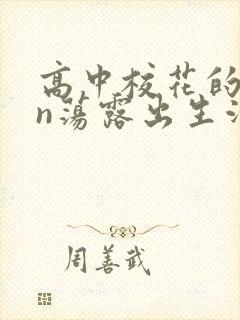 高中校花的
n荡露出生活
周善武